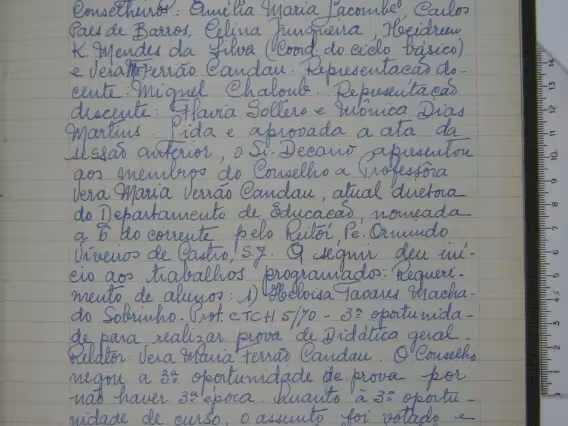 Conselheiros: Amélia Maria Lacombe, Carlos
Paes de Barros, Celina Junqueira, Heidrun
K. Mendes da Silva (Coord. do ciclo básico)
e Vera M. Ferrão Candau. Representação do-
cente: Miguel Chaloub. Representação
discente: Flavia Sollero e Mônica Dias
Martins. Lida e aprovada a ata da
sessão anterior, o Sr. Decano apresentou
aos membros do Conselho a Professôra
Vera Maria Ferrão Candau, atual diretora
do Departamento de Educação, nomeada
a 6 do corrente pelo Reitor, Pe. Ormindo
Viveiros de Castro, S.J. A seguir deu iní-
cio aos trabalhos programados: Requeri-
mento de alunos: 1) Heloisa Tavares Macha-
do Sobrinho. Prot. CTCH 5/70 - 3ª oportunida-
de para realizar prova de Didática geral.
Relator Vera Maria Ferrão Candau. O Conselho
negou a 3ª oportunidade de prova por
não haver 3ª época. Quanto à 3ª oportu-
nidade de curso, o assunto foi votado e